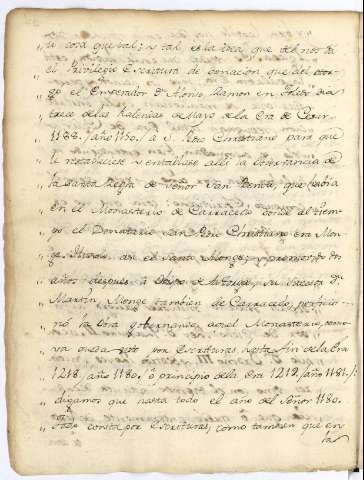 " u cosa que tal; y tal es la Idea que del nos dá
" el Privilegio Escritura de Donacion que del otor-
" go el Emperador Dn Alonso Ramon en Toledo dia
" trece de las Kalendas de Mayo de la Era de Cesar
" 1188. año 1150. a S. Pedro Christiano para que
" restaurase y entablase alli la Observancia de
" la Santa Regla de Señor San Benito, que habia
" en el Monasterio de Carracedo donde al tiem-
" po el Donatario San Pedro Christiano era Mon-
" ge. así el Santo Monge; y promovido dos
" años despues à Obispo de Astorga, su Dn
" Martin, Monge tambien de Carracedo, perficio-
" nó la Obra gobernando aquel Monasterio, como
" ya queda por Escrituras hasta fin de la Era
" 1218. año 1180. ò principio de la Era 1219. (año 1181.):
" digamos que hasta todo el año del Señor 1180.
" Todo consta por Escrituras; como tambien que en
la